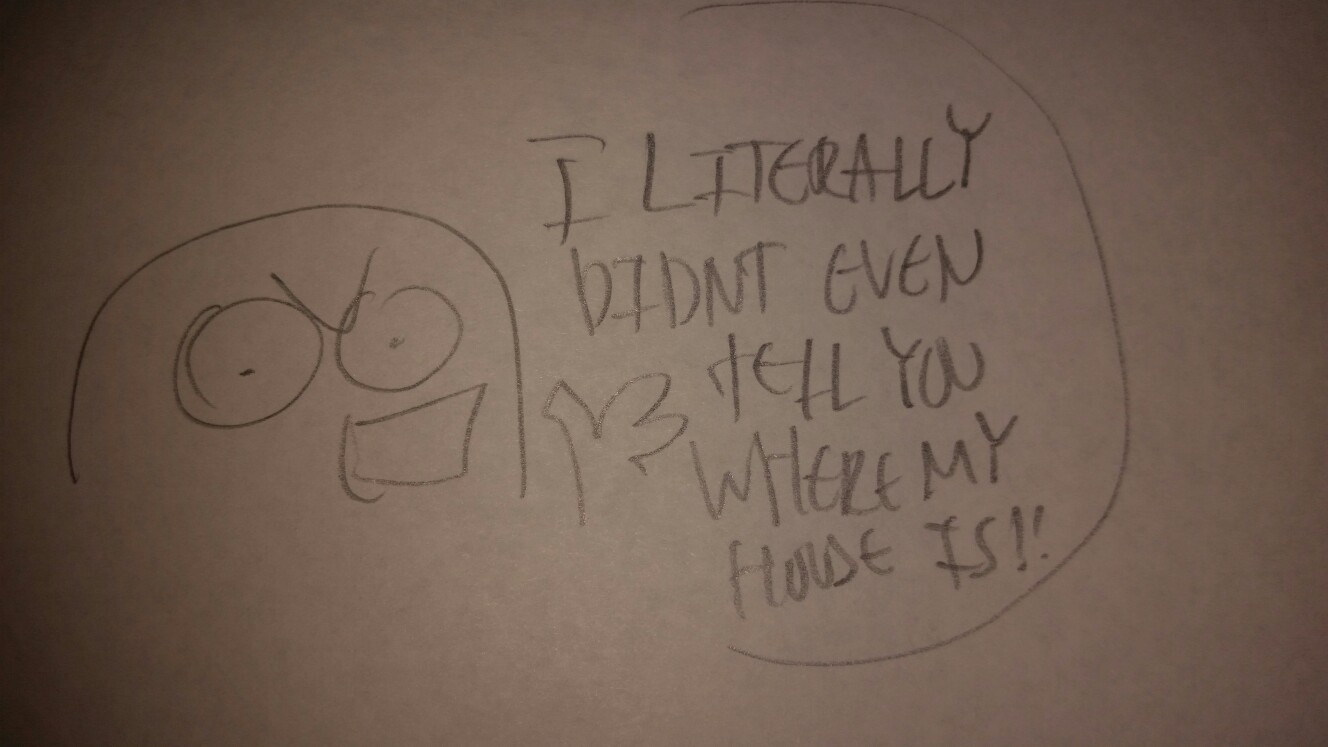 I LITERALLY
DIDNT EVEN
TELL YOU
WHERE MY
HOUSE IS!!